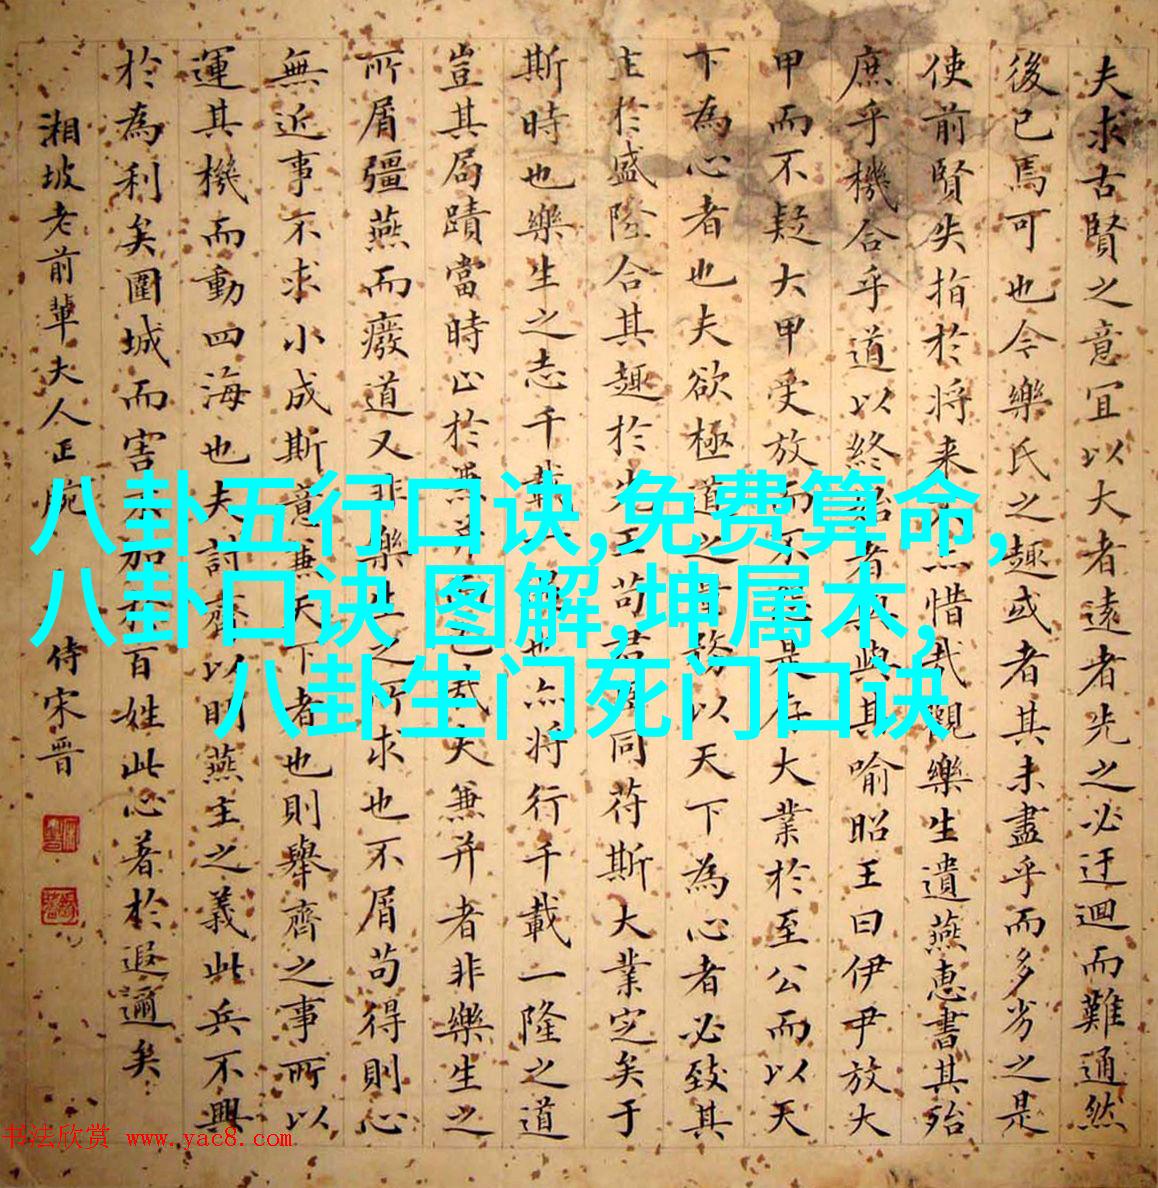 夫求古賢之意宜以大者遠者先之必迂迴而難通然
後已焉可也今樂氏之趣或者其未盡乎而多劣之是
使前賢失指於将来不亦惜哉觀樂生遺燕惠書其殆
庶乎機合乎道以終始者與其喻昭王曰伊尹放大
甲而不疑大甲受放而不怨是存大業於至公而以天
下為心者也夫欲極道之量務以天下為心者必致其
主於盛隆合其趣於先王苟君臣同苻斯大業定矣于
斯時也樂生之志千載一遇也亦将行千載一隆之道
豈其局蹟當時止於兼并而已哉夫兼并者非樂生之
所屑彊燕而廢道又非樂生之所求也不屑苟得則心
無近事不求小成斯意兼天下者也則舉齊之事所以
運其機而動四海也夫討齊以明燕主之義此兵不興
於為利矣圍城而害不加於百姓此心著於遐邇矣
湘坡老前輩夫人正腕
侍宋晋
八卦五行口诀,免费算命,
八卦口诀 图解,坤属木,
八卦生门死门口诀
书法欣赏 www.yac8.com